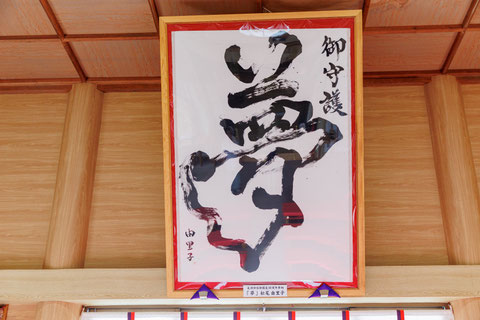 御守護
夢
由里子
「夢」 松尾 由里子